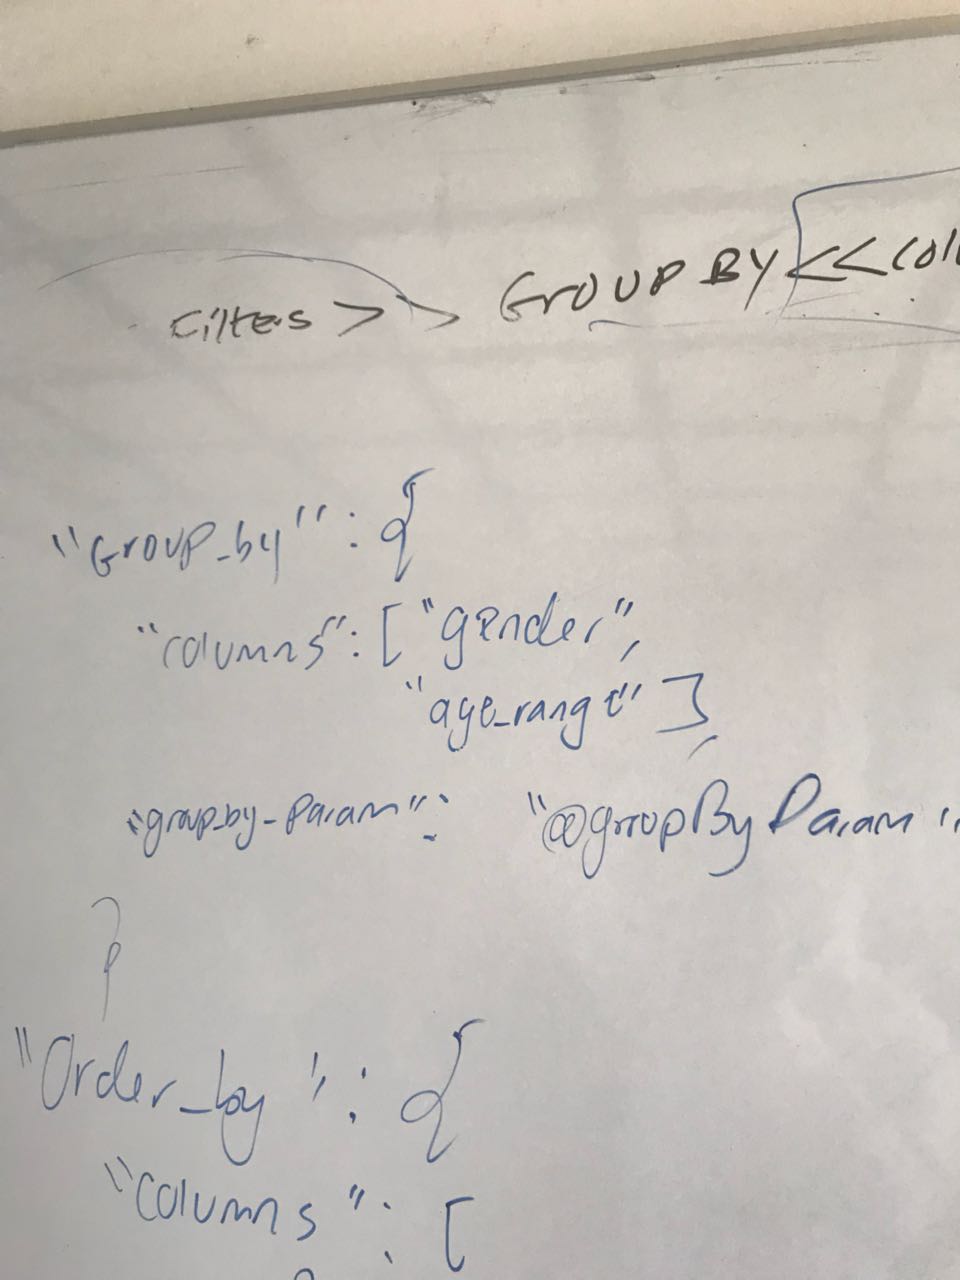 Filters >> GROUP BY <<
"Group_by": {
"columns": ["gender",
"age_range"],
"group_by_Param": "@groupByParam"
}
"Order_by": {
"columns": [